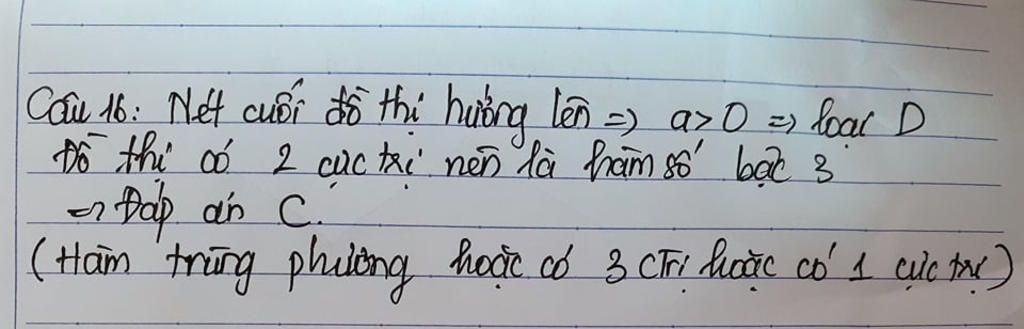 Câu 16: Nét cuối đồ thị hướng lên => a > 0 => loại D
Đồ thị có 2 cực trị nên là hàm số bậc 3
=> Đáp án C.
(Hàm trùng phương hoặc có 3 cTrị hoặc có 1 cực trị)